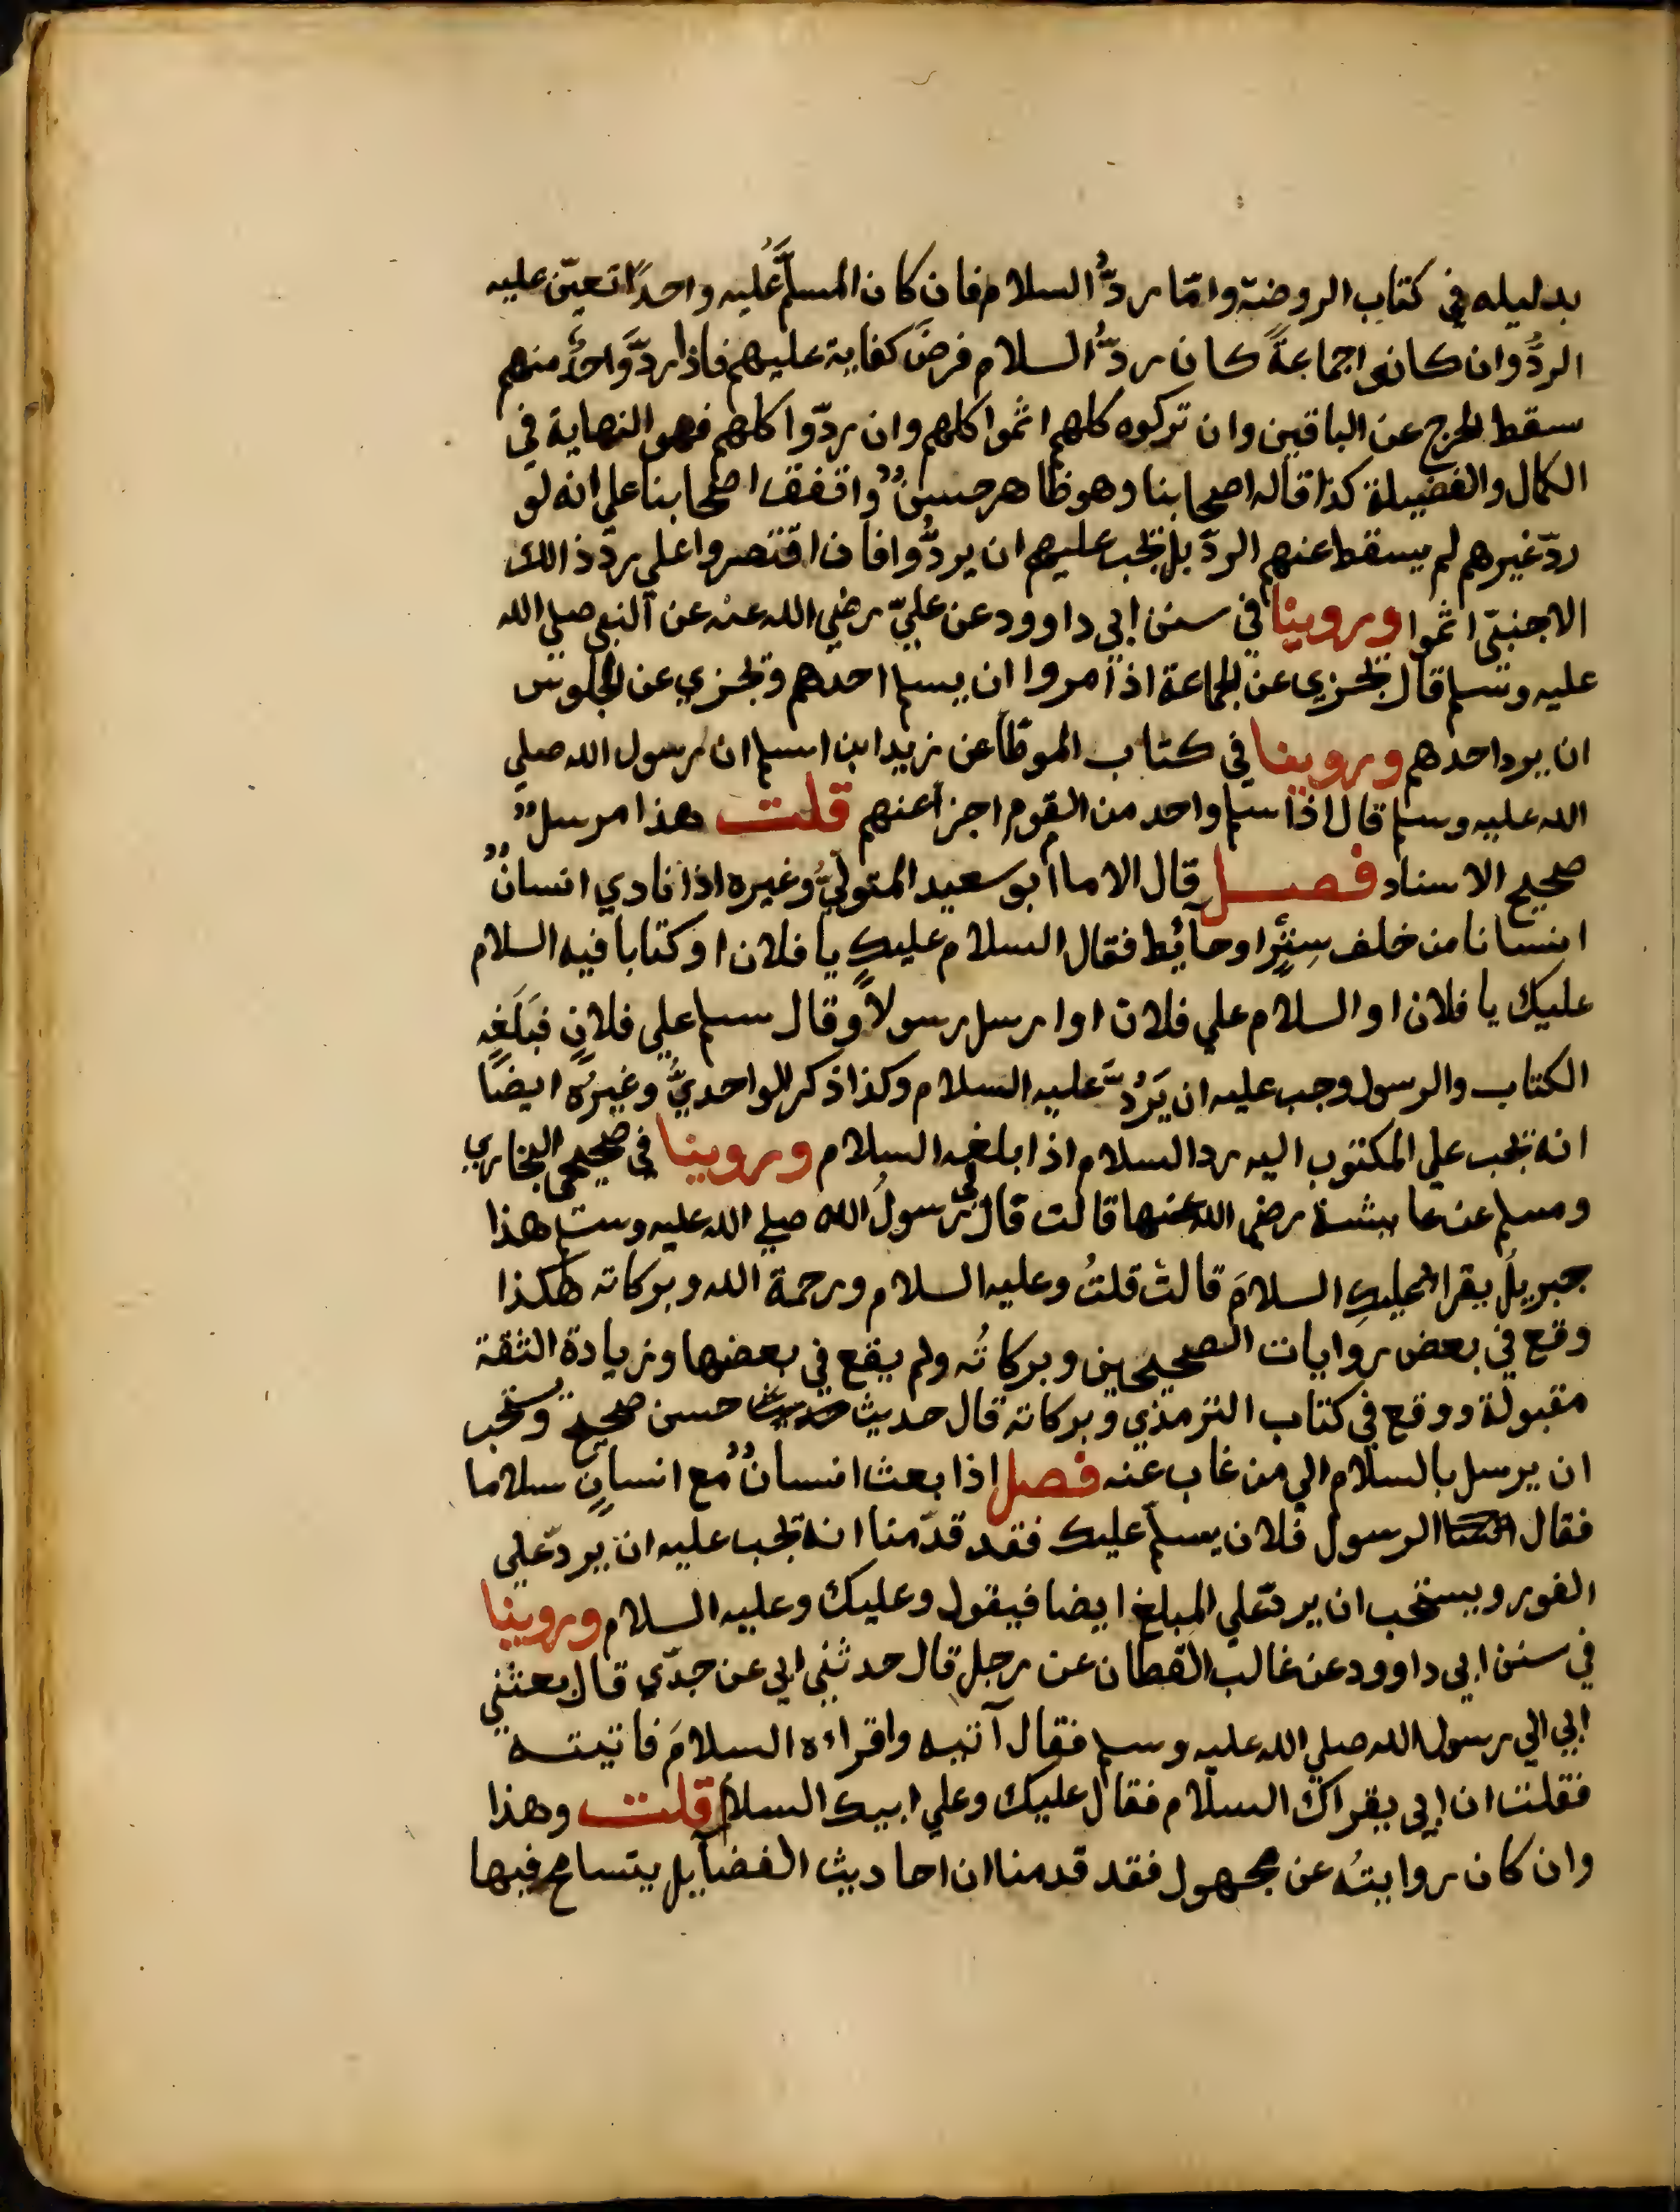 بدليله في كتاب الروضة وامّا ردُّ السلام فان كان المسلَّمُ عليه واحدًا تعيّن عليه
الردُّ وان كانوا جماعةً كان ردُّ السلام فرضَ كفاية عليهم فاذا ردَّ واحدٌ منهم
سقط الحرج عن الباقين وان تركوه كلهم اثموا كلهم وان ردّوا كلهم فهو النهاية في
الكمال والفضيلة كذا قاله اصحابنا وهو ظاهر حسنٌ واتفق اصحابنا علي انه لو
ردّ غيرهم لم يسقط عنهم الردّ بل يجب عليهم ان يردُّوا فان اقتصروا علي ردّ ذالك
الاجنبيّ اثموا وروينا في سنن ابي داوود عن عليّ رضي الله عنه عن النبي صلي الله
عليه وسلم قال يجزي عن الجماعة اذا مروا ان يسلم احدهم ويجزي عن الجلوس
ان يرد احدهم وروينا في كتاب الموطّأ عن زيد ابن اسلم ان رسول الله صلي
الله عليه وسلم قال اذا سلم واحد من القوم اجزأ عنهم قلت هذا مرسلٌ
صحيح الاسناد فصل قال الاما أبو سعيد المتوليُّ وغيره اذا نادي انسانٌ
انسانا من خلف سِترٍ او حائط فقال السلام عليك يا فلان او كتابا فيه السلام
عليك يا فلان او السلام علي فلان او ارسل رسولاً وقال سلم علي فلانٍ فبَلَغه
الكتاب والرسول وجب عليه ان يَرُدَّ عليه السلام وكذا ذكر الواحديُّ وغيرُه ايضًا
انه يجب علي المكتوب اليه رد السلام اذا بلغه السلام وروينا في صحيحي البخاري
ومسلم عن عايشة رضي الله عنها قالت قال لي رسولُ الله صلي الله عليه وسلم هذا
جبريلُ يقرا عليكِ السلامَ قالت قلتُ وعليه السلام ورحمة الله وبركاته هكذا
وقع في بعض روايات الصحيحين وبركاتُه ولم يقع في بعضها وزيادة الثقة
مقبولة ووقع في كتاب الترمذي وبركاته قال حديث حسن صحيح ويستحب
ان يرسل بالسلام الي من غاب عنه فصل اذا بعث انسانٌ مع انسانٍ سلاما
فقال الرسول فلان يسلّم عليك فقد قدّمنا انه يجب عليه ان يردّ علي
الفور ويستحب ان يردّ علي المبلغ ايضا فيقول وعليك وعليه السلام وروينا
في سنن ابي داوود عن غالب القطان عن رجل قال حدثني ابي عن جدّي قال بعثني
ابي الي رسول الله صلي الله عليه وسلم فقال آئتيه واقراءه السلامَ فاتيته
فقلت ان ابي يقراك السلام فقال عليك وعلي ابيك السلام قلت وهذا
وان كان روايتُه عن مجهول فقد قدمنا ان احاديث الفضايل يتسامح فيها